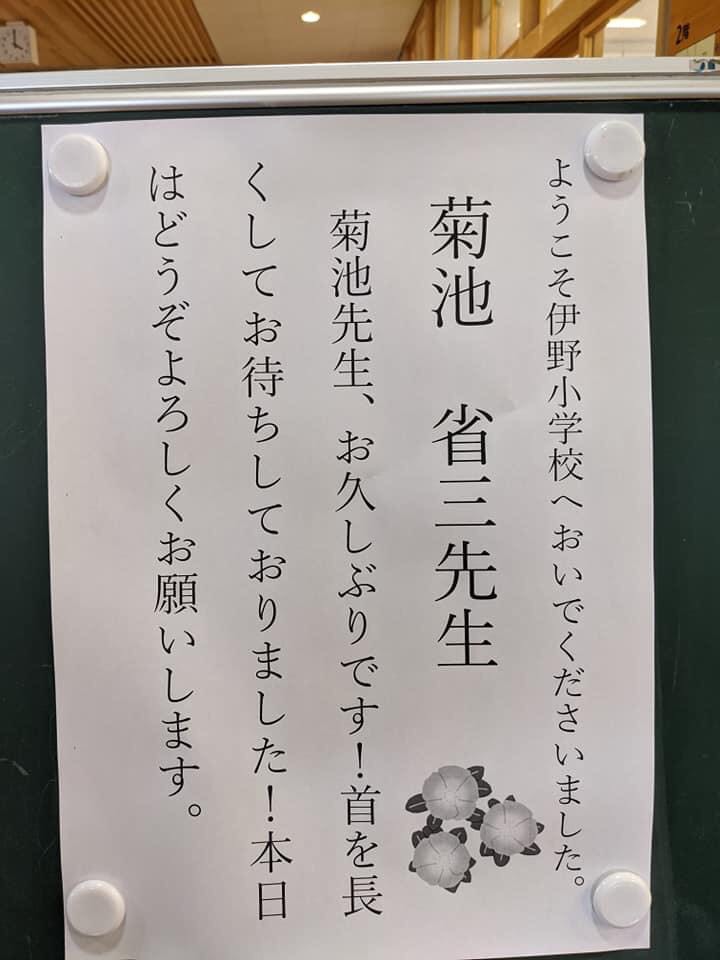 ようこそ伊野小学校へおいでくださいました。
菊池　省三先生
菊池先生、お久しぶりです！首を長
くしてお待ちしておりました！本日
はどうぞよろしくお願いします。
2階